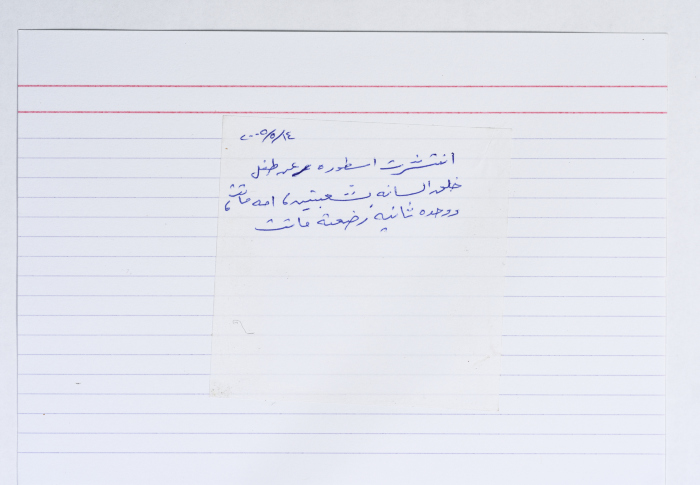 ٢٠٠٥/٥/١٤
انتشرت اسطوره عن طفل
خلق لسانه بشعبتين، امه ماتت،
ووحده ثانيه رضعته ماتت